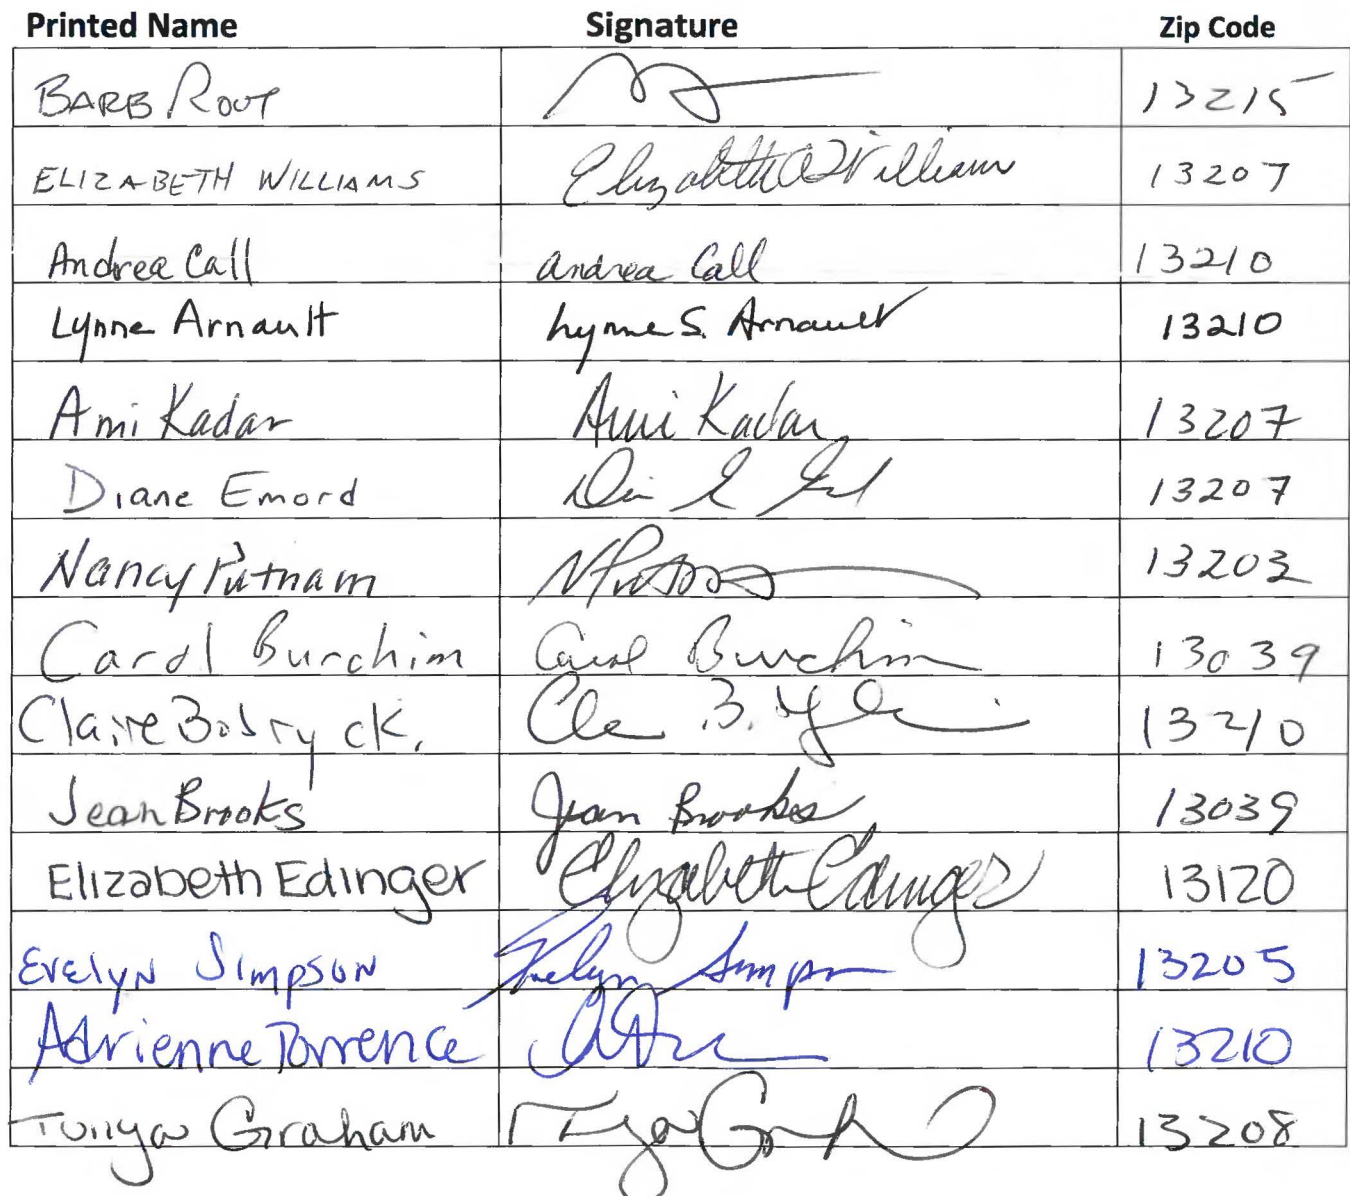 Printed Name Signature Zip Code
BARB ROOT 13215
ELIZABETH WILLIAMS Elizabeth William 13207
Andrea Call Andrea Call 13210
Lynne Arnault Lynne S. Arnault 13210
Ami Kadar Ami Kadar 13207
Diane Emord 13207
Nancy Putnam 13203
Carol Burchim Carol Burchim 13039
Claire Bobrycki 13210
Jean Brooks Jean Brooks 13039
Elizabeth Edinger Elizabeth Edinger 13120
Evelyn Simpson Evelyn Simpson 13205
Adrienne Torrence 13210
Tonya Graham 13208